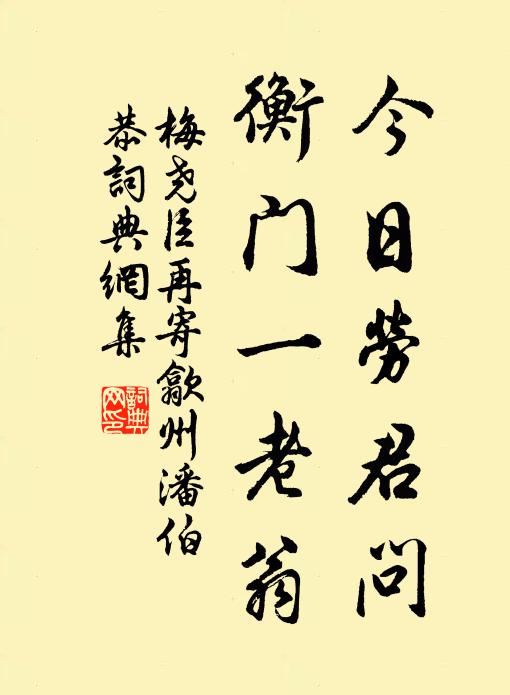 今日劳君问
衡门一老翁
梅尧臣再寄歙州潘伯
恭词典網集
詞典
网印